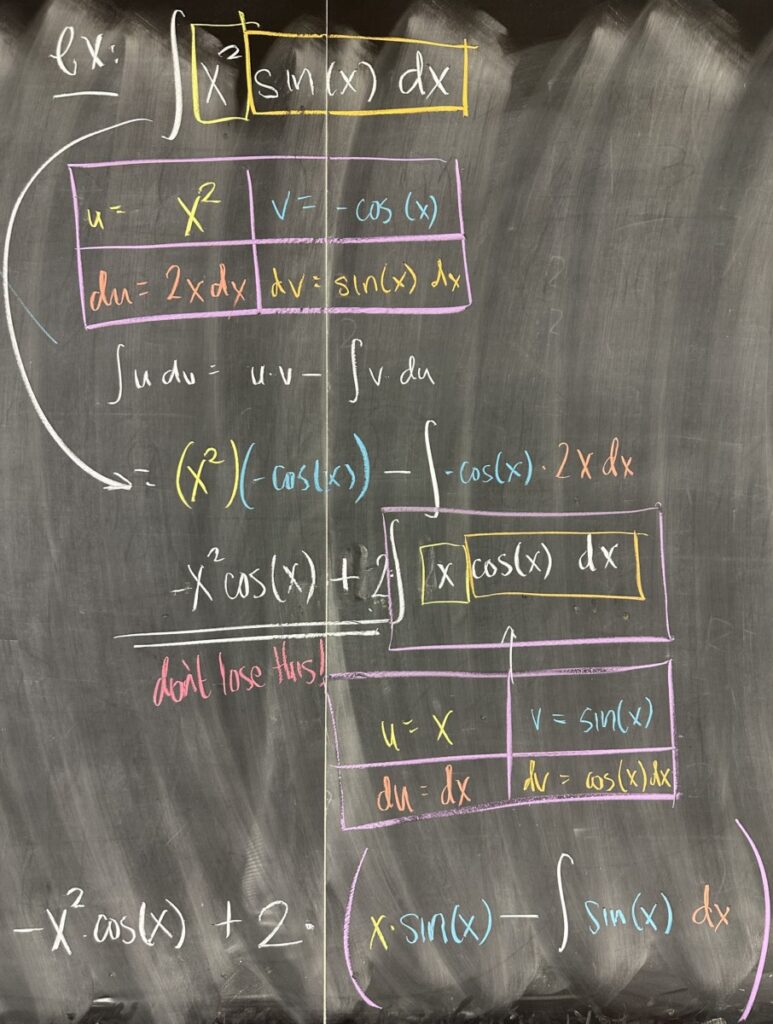 ex: ∫ x² sin(x) dx
u = x² v = -cos(x)
du = 2x dx dv = sin(x) dx
∫ u dv = u·v - ∫ v·du
= (x²)(-cos(x)) - ∫ -cos(x)·2x dx
-x² cos(x) + 2 ∫ x cos(x) dx
don't lose this!
u = x v = sin(x)
du = dx dv = cos(x) dx
-x²·cos(x) + 2·(x·sin(x) - ∫ sin(x) dx)